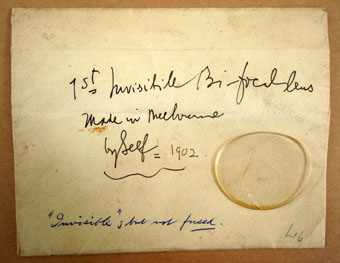 1st Invisible Bi-focal lens
Made in Melbourne
by Self = 1902.
"Invisible" but not fused.